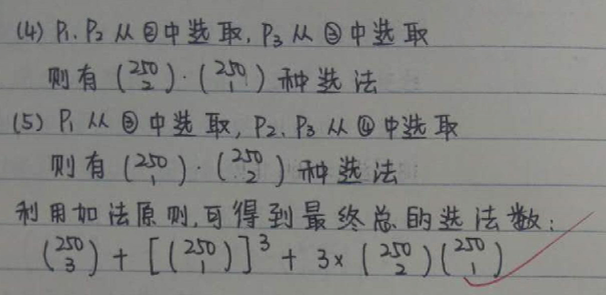 (4) P₁、P₂ 从②中选取, P₃ 从③中选取
则有 (250 2)·(250 1) 种选法
(5) P₁ 从③中选取, P₂、P₃ 从④中选取
则有 (250 1)·(250 2) 种选法
利用加法原则,可得到最终总的选法数:
(250 3) + [(250 1)]³ + 3× (250 2)(250 1)